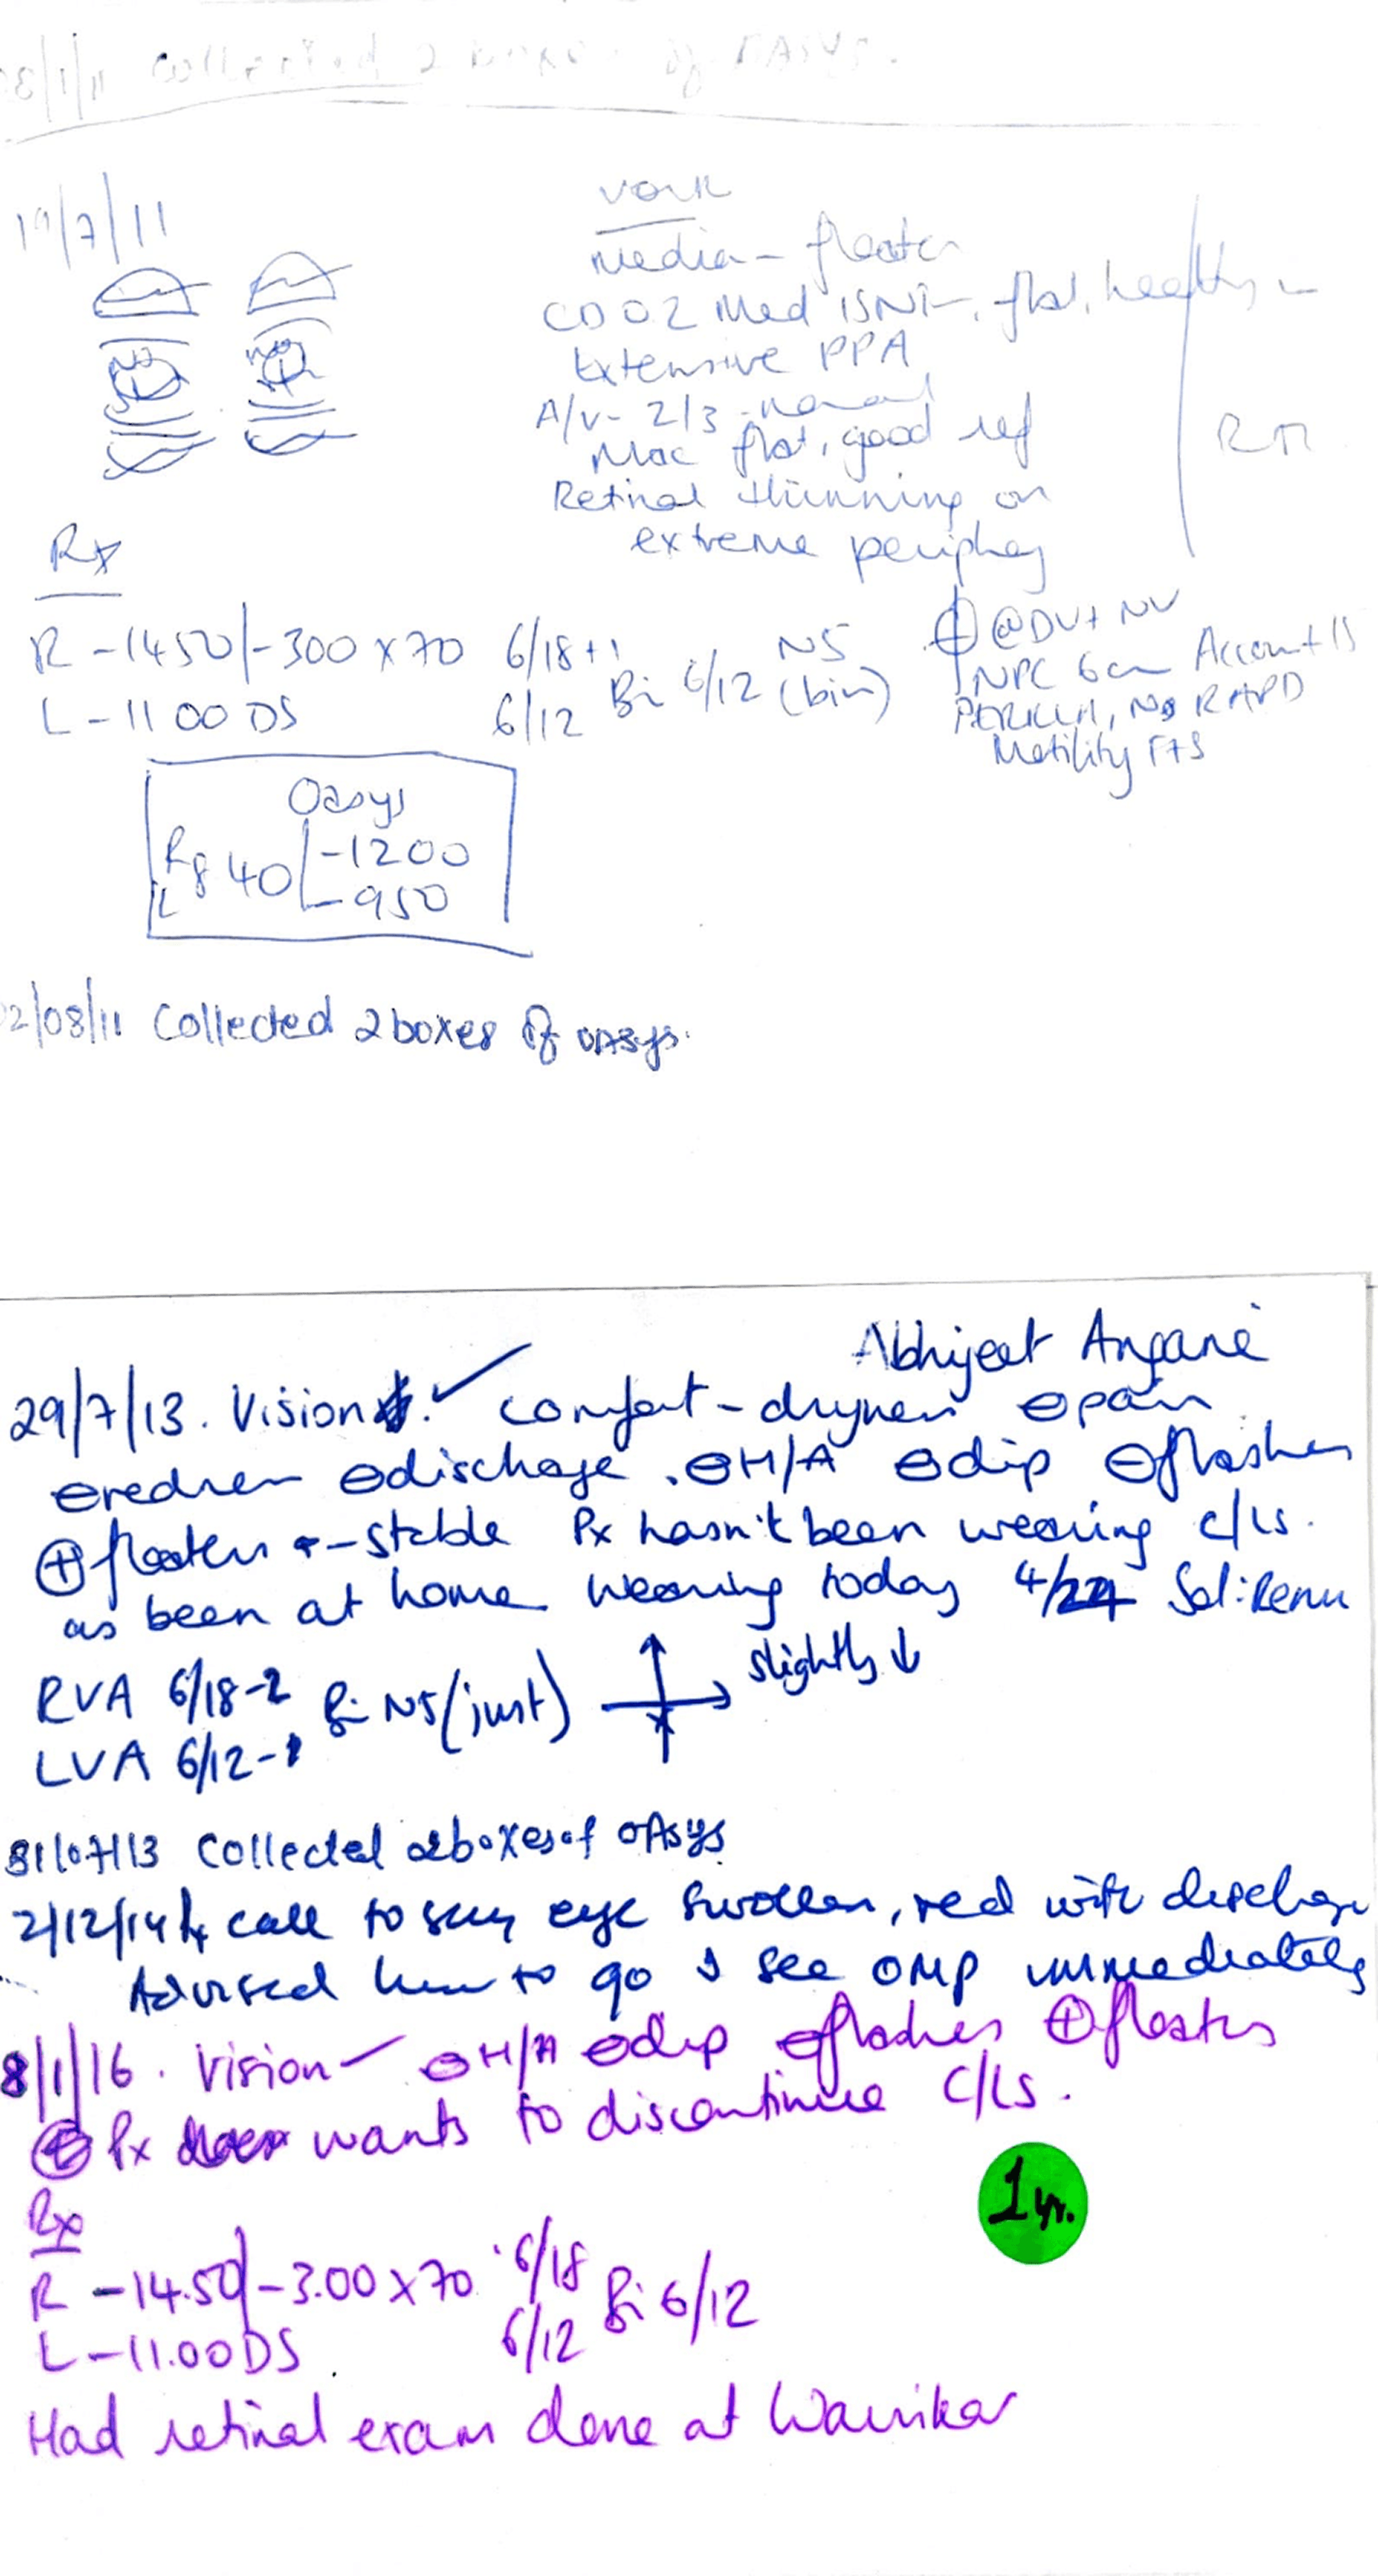 Collected 2 boxes of OASYS.
19/7/11
VOLK
Media - floater
CD 0.2 Med ISNT, flat, healthy
Extensive PPA
A/V - 2/3 - normal
Mac flat, good ref
Retinal thinning on
extreme periphery
Rx
R -1450/-300 x 70 6/18+1
L -1100 DS 6/12
Bi 6/12 N5 (bin)
@DV+NV
NPC 6cm Accom + 15
PERRLA, No RAPD
Motility F+S
Oasys
R 8 40 -1200
L -950
2/08/11 Collected 2 boxes of OASYS.
Abhijeet Angane
29/7/13. Vision ✓ comfort - dryness ⊖pain
⊖redness ⊖discharge. ⊖H/A ⊖dip ⊖flashes
⊕floaters - stable Px hasn't been wearing c/ls.
as been at home wearing today 4/24 Sol: Renu
RVA 6/18-2
LVA 6/12-1
Bi N5 (just)
slightly ↓
31/07/13 Collected 2 boxes of OASYS
2/12/14 call to say eye swollen, red with discharge
Advised him to go & see OMP immediately
8/1/16. Vision ✓ ⊖H/A ⊖dip ⊖flashes ⊕floaters
Px wants to discontinue C/LS.
1 yr.
Rx
R -14.50/-3.00 x 70 6/18
L -11.00 DS 6/12
Bi 6/12
Had retinal exam done at